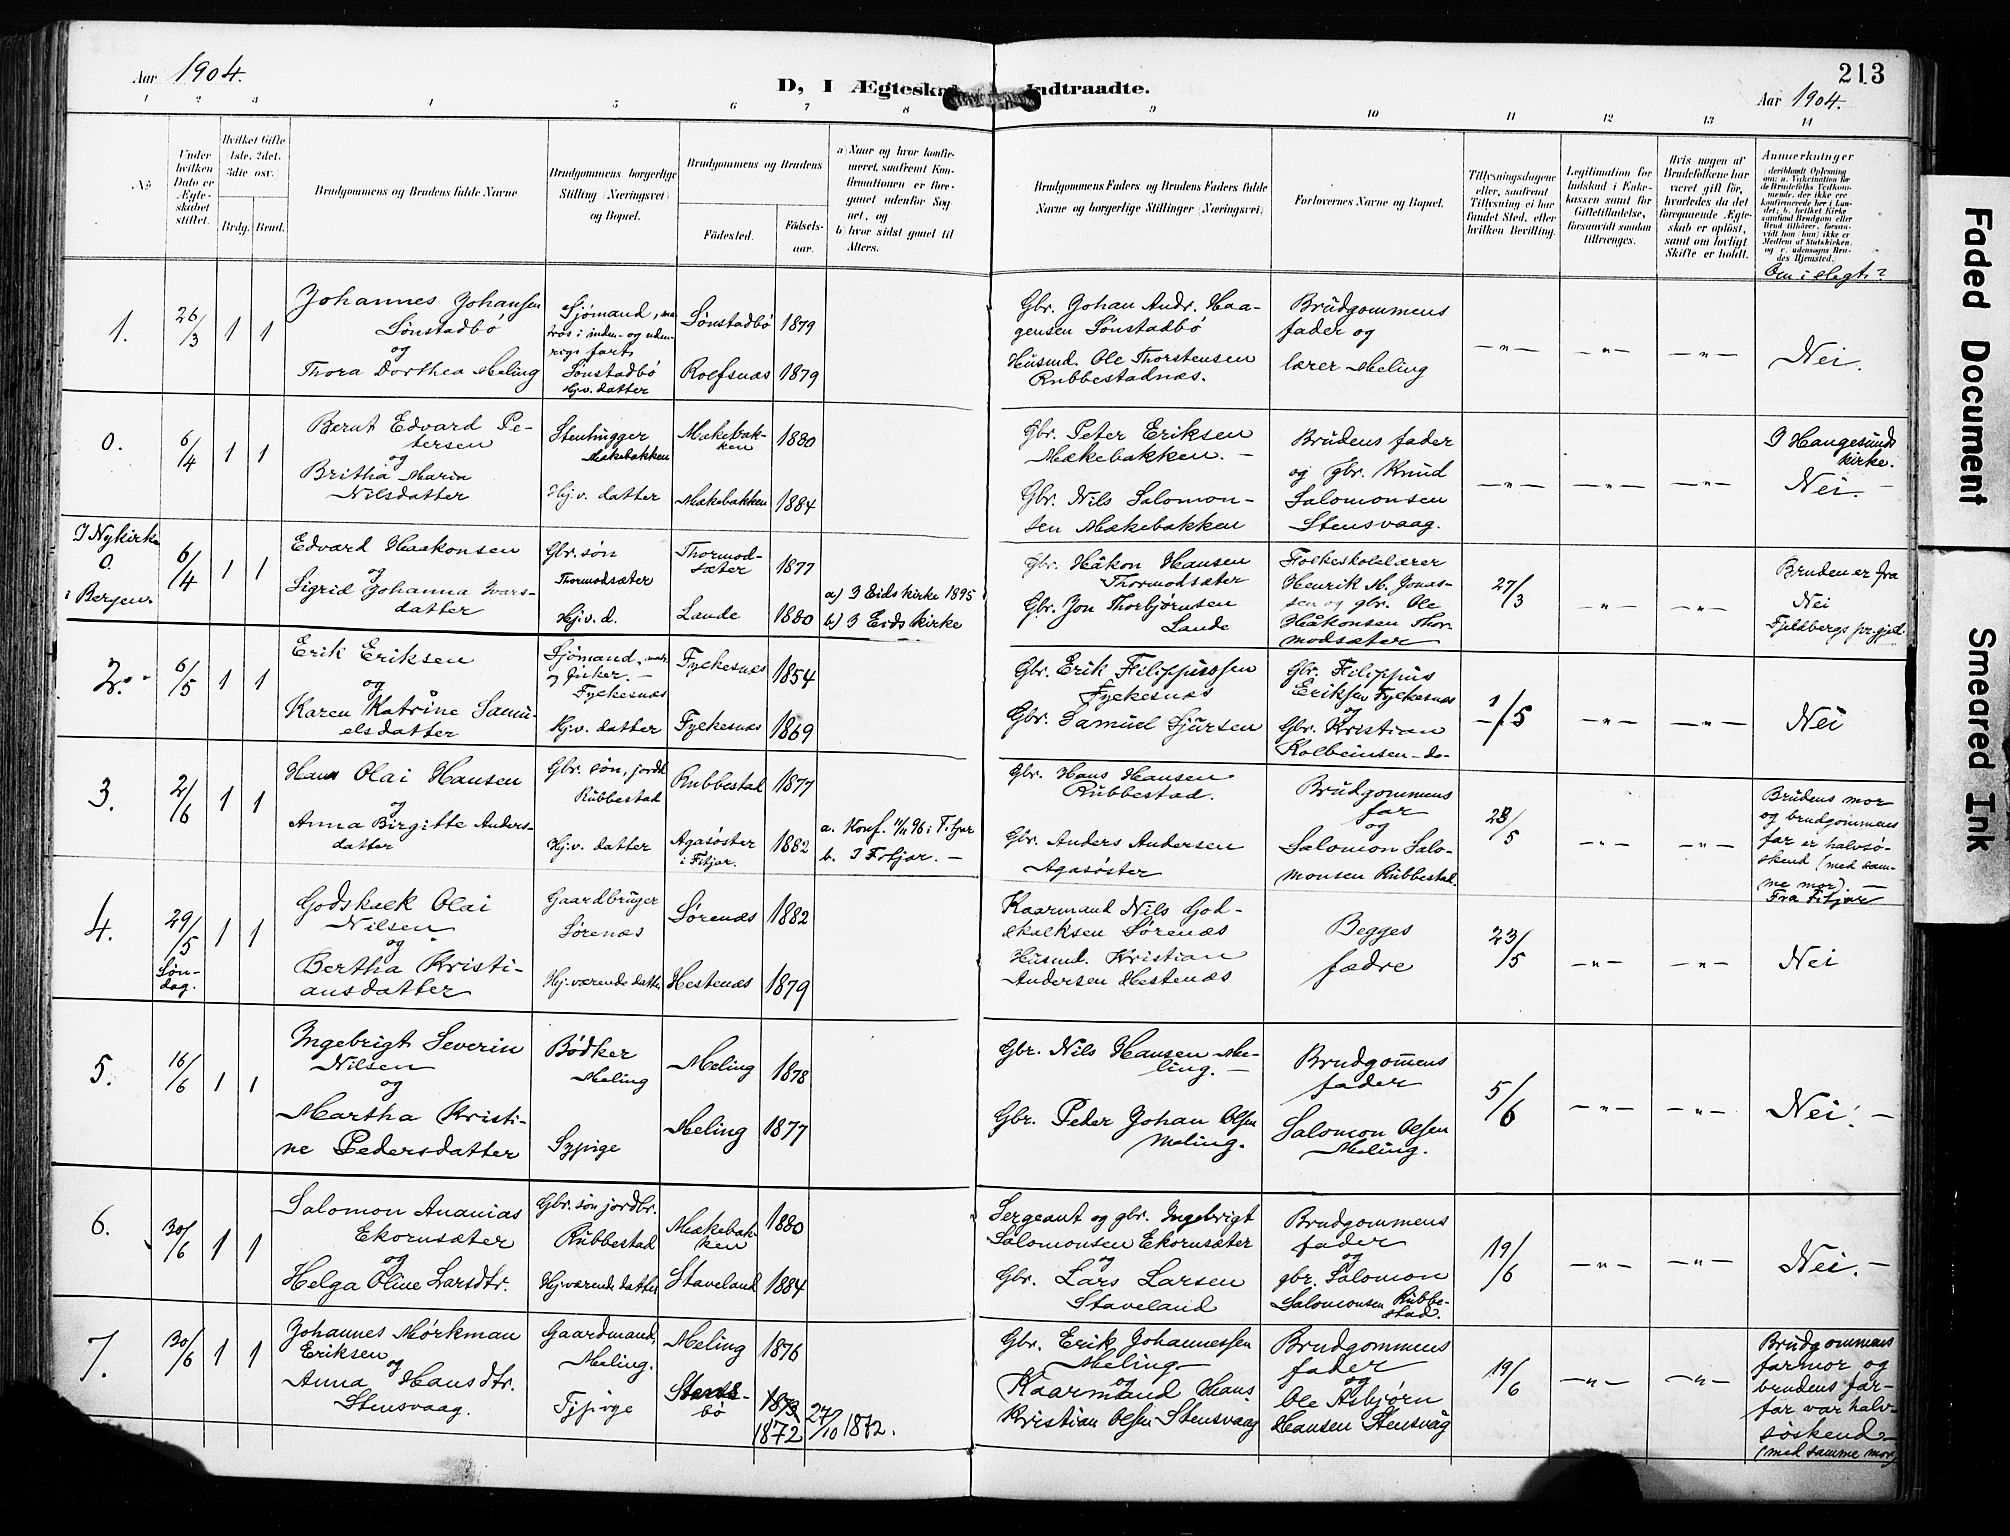 Aar 1904.
D, I Ægteska
Indtraadte.
213
Aar 1904.
1 2 3 4 5 6 7 8 9 10 11 12 13 14
No
Under hvilken Dato er Ægteskabet stiftet.
Hvilket Gifte 1ste, 2det, 3die osv.
Brdg. Brud.
Brudgommens og Brudens fulde Navne
Brudgommens borgerlige Stilling (Næringsvei) og Bopæl.
Brudgommens og Brudens
Fødested.
Fødselsaar.
a) Naar og hvor konfirmeret, saafremt Konfirmationen er foregaaet udenfor Sognet, og
b) hvor sidst gaaet til Alters.
Brudgommens Faders og Brudens Faders fulde Navne og borgerlige Stillinger (Næringsvei)
Forlovernes Navne og Bopæl.
Tillysningsdagene eller, saafremt Tillysning ei har fundet Sted, efter hvilken Bevilling.
Legitimation for Indskud i Enkekassen samt for Giftetilladelse, forsaavidt saadan tiltrænges.
Hvis nogen af Brudefolkene har været gift før, hvorledes da det foregaaende Ægteskab er opløst, samt om lovligt Skifte er holdt.
Anmærkninger
(deriblandt Oplysning om: a. Vakcination for de Brudefolks Vedkommende, der ikke ere konfirmerede her i Landet; b. hvilket Kirkesamfund Brudgom eller Brud tilhører, forsaavidt han (hun) ikke er Medlem af Statskirken, og c. udensogns Brudes Hjemsted.)
Om i slegt?
1.
26/3
1 1
Johannes Johansen
Sønstadbø
og
Thora Dorthea Meling
Sjømand, ma-
tros i inden- og uden-
rigs fart
Sønstadbø
Hj.v. datter
Sønstadbø 1879
Roefsnæs 1879
Gbr. Johan Andr. Haa-
gensen Sønstadbø
Husmd. Ole Thorstensen
Rubbestadnæs.
Brudgommens
fader og
lærer Meling
—"— —"— —"—
Nei.
0.
6/4
1 1
Bernt Edvard Pe-
tersen
og
Britha Maria
Nilsdatter
Stenhugger
Mækebakken
Hj.v. datter
Mækebak-
ken 1880
Mækebakken 1884
Gbr. Peter Eriksen
Mækebakken. —
Gbr. Nils Salomon-
sen Mækebakken
Brudens fader
og gbr. Knud
Salomonsen
Stensvaag.
—"— —"— —"—
I Haugesunds
kirke.
Nei. —
I Nykirke
0.
i Bergen.
6/4
1 1
Edvard Haakonsen
og
Sigrid Johanna Ivars-
datter
Gbr. søn
Thormodsæter
Hj.v.d.
Thormod-
sæter 1877
Lande 1880
a) I Eids kirke 1895
b) I Eids kirke
Gbr. Håkon Hansen
Thormodsæter
Gbr. Jon Thorbjørnsen
Lande
Folkeskolelærer
Henrik M. Jonas-
sen og gbr. Ole
Håkonsen Thor-
modsæter
27/3
—"— —"—
Bruden er fra
Nei
Fjeldbergs pr.gjeld
2.
6/5
1 1
Erik Eriksen
og
Karen Katrine Samu-
elsdatter
Sjømand,
og fisker. —
Fylkesnæs
Hj.v. datter
Fylkesnæs 1854
Fylkesnæs 1869
Gbr. Erik Filippussen
Fylkesnæs
Gbr. Samuel Sjursen
Gbr. Filippus
Eriksen Fylkesnæs
og
Gbr. Kristian
Kolbeinsen -do-
1/5
—"— —"—
Nei
3.
2/6
1 1
Hans Olai Hansen
og
Anna Birgitte Anders-
datter
Gbr. søn, jordb.
Rubbestad
Hj.v. datter
Rubbestad 1877
Agasøster
i Fitjar. 1882
a. Konf. 11/11 96 i Fitjar
b. I Fitjar. —
Gbr. Hans Hansen
Rubbestad.
Gbr. Anders Andersen
Agasøster
Brudgommens
far
og
Salomon Salo-
monsen Rubbestad.
28/5
—"— —"—
Brudens mor
og brudgommens
far er halvsø-
skend (med sam-
me mor). —
Fra Fitjar
4.
29/5
Søn-
dag.
1 1
Godskalk Olai
Nilsen
og
Bertha Kristi-
ansdatter
Gaardbruger
Sørenæs
Hj.værende datter
Sørenæs 1882
Hestenæs 1879
Kaarmand Nils God-
skalksen Sørenæs
Husmd. Kristian
Andersen Hestenæs
Begges
fædre
23/5
—"— —"—
Nei
5.
16/6
1 1
Ingebrigt Severin
Nilsen
og
Martha Kristi-
ne Pedersdatter
Bødker
Meling
Sypige
Meling 1878
Meling 1877
Gbr. Nils Hansen Me-
ling. —
Gbr. Peder Johan Olsen
Meling.
Brudgommens
fader
Salomon Olsen
Meling.
5/6
—"— —"—
Nei. —
6.
30/6
1 1
Salomon Ananias
Ekornsæter
og
Helga Oline Larsdtr.
Gbr. søn jordbr.
Rubbestad
Hj.værende datter
Mækebak-
ken 1880
Staveland 1884
Sergeant og gbr. Ingebrigt
Salomonsen Ekornsæter
og
Gbr. Lars Larsen
Staveland
Brudgommens
fader
og
gbr. Salomon
Salomonsen Rubbe-
stad.
19/6
—"— —"—
Nei. —
7.
30/6
1 1
Johannes Mørkman
Eriksen
og
Anna Hansdtr.
Stensvaag.
Gaardmand,
Meling.
Tjpige
Meling 1876
bø
1873
1872
27/10 1872.
Gbr. Erik Johannessen
Meling —
og
Kaarmand Hans
Kristian Olsen Stensvaag
Brudgommens
fader
og
Ole Asbjørn
Hansen Stensvåg
19/6
—"— —"—
Brudgommens
farmor og
brudens far-
far var halv-
søskend —
(med samme mor)
Faded Document
Smeared Ink